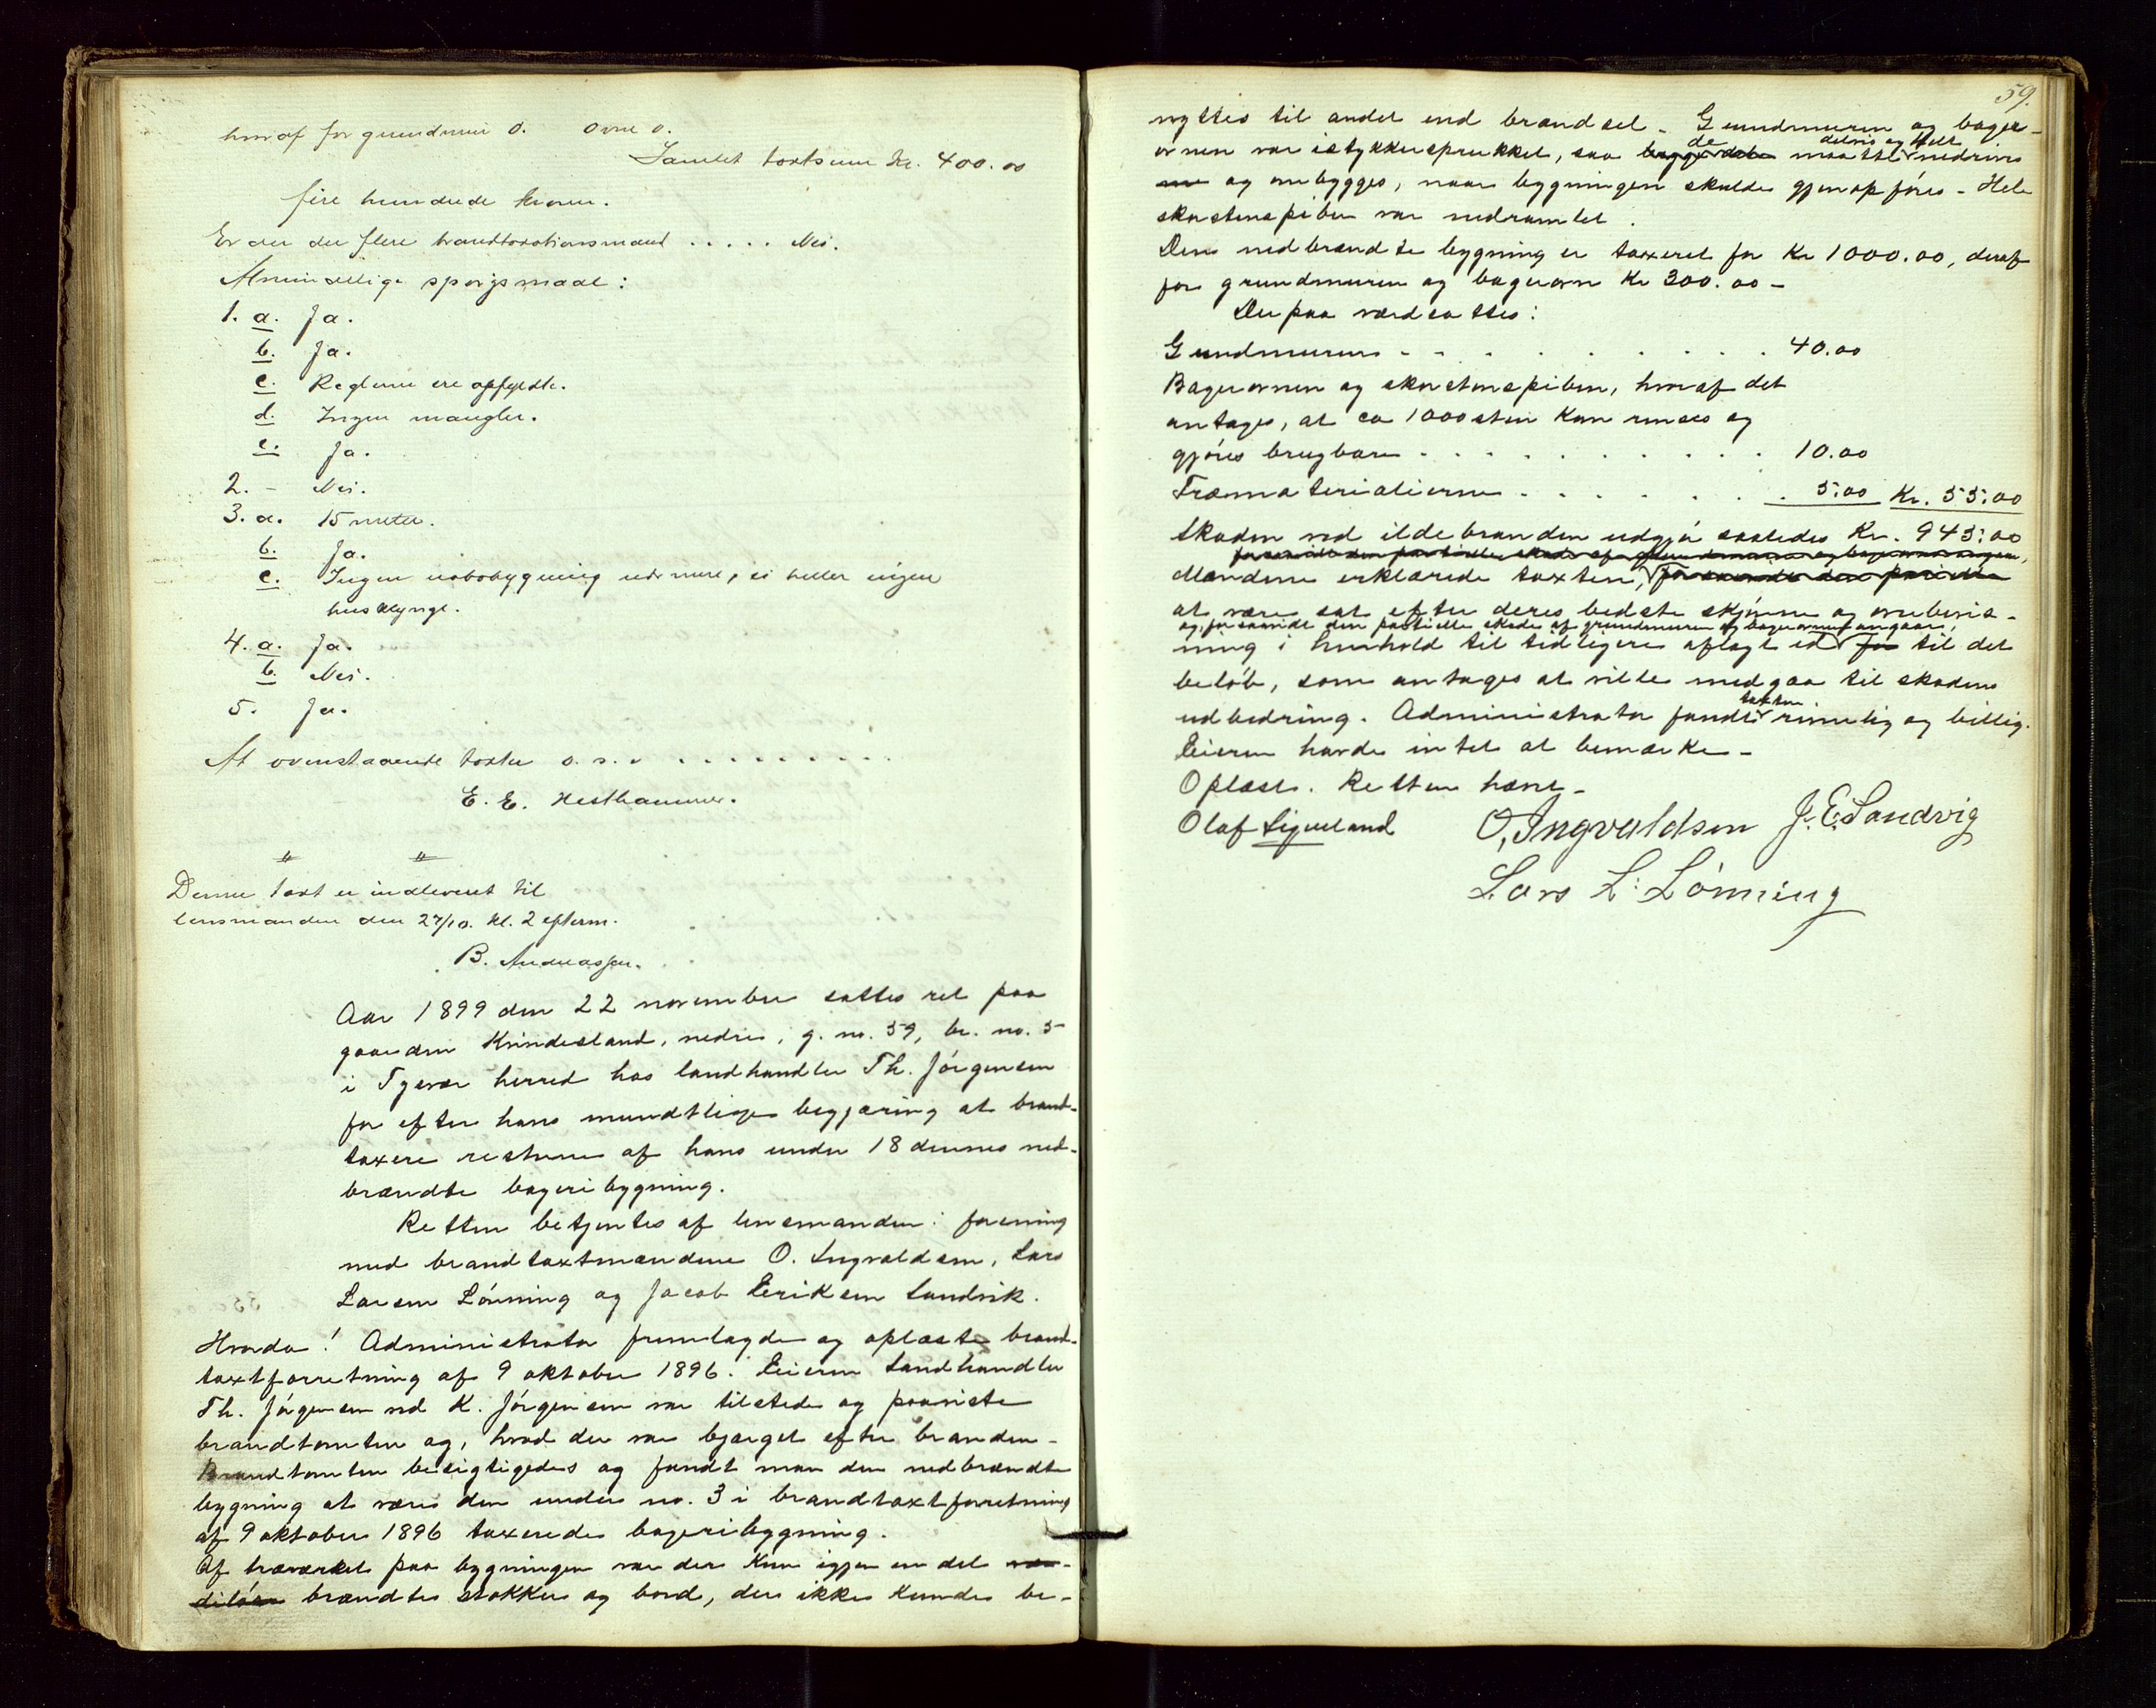 hvoraf for grundmur 0. Ovne 0.
Samlet taxtsum Kr. 400.00
fire hundrede kroner.
Er der der flere brandtaxationsmænd ..... Nei.
Almindelige spørgsmaal:
1. a. Ja.
b. Ja.
c. Reglerne ere opfyldte.
d. Ingen mangler.
e. Ja.
2. - Nei.
3. a. 15 meter.
b. Ja.
c. Ingen nabobygning nærmere, ei heller nogen
husklynge.
4. a. Ja.
b. Nei.
5. Ja.
At ovenstaaende taxter o. s. v. ..........
E. E. Hesthammer.
Denne taxt er indleveret til
lensmanden den 27/10. kl. 2 efterm.
B. Andreassen.
Aar 1899 den 22 november sattes ret paa
gaarden Kvindesland, nedre, g. no. 59, br. no. 5
i Tysvær herred hos landhandler Th. Jórgensen
for efter hans mundtlige begjæring at brand-
taxere resterne af hans under 18 dennes ned-
brændte bageribygning.
Retten betjentes af lensmanden i forening
med brandtaxtmændene O. Ingvaldsen, Lars
Larsen Lónning og Jacob Eriksen Sandvik.
Hvorda! Administrator fremlagde og oplæste brand-
taxtforretning af 9 oktober 1896. Eieren Landhandler
Th. Jórgensen ved K. Jórgensen var tilstede og paaviste
brandtomten og, hvad der var bjærget efter branden -
Brandtomten besigtigedes og fandt man den nedbrændte
bygning at være den under no. 3 i brandtaxtforretning
af 9 oktober 1896 taxerede bageribygning.
Af træværket paa bygningen var der kun igjen en del vær-
dilóse brændte stokker og bord, der ikke kunde be-
59.
nyttes til andet end brændsel. Grundmuren og bager-
ovnen var istykkersprukket, saa begge dele de maatte delvis og helt nedrives
og ombygges, naar bygningen skulde gjenopfóres - Hele
skorstenspiben var nedramlet.
Den nedbrændte bygning er taxeret for Kr 1000.00, deraf
for grundmuren og bagerovn Kr 300.00 -
Derpaa værdsattes:
Gundmuren . . . . . . . . . . 40.00
Bagerovnen og skorstenspiben, hvoraf det
antages, at ca 1000 sten kan renses og
gjóres brugbare . . . . . . . . . . 10.00
Træmaterialierne . . . . . . . . 5.00 Kr. 55.00
Skaden ved ildebranden udgjór saaledes Kr. 945.00
forsaavidt den partielle skade af grundmuren og bagerovnen angaar,
Mændene erklærede taxten, forsaavidt den partielle
at være sat efter deres bedste skjónne og overbevis-
og, forsaavidt den partielle skade af grundmuren og bagerovnen angaar,
ning i henhold til tidligere aflagt ed for til det
beløb, som antages at ville medgaa til skadens
udbedring. Administrator fandt taxten rimelig og billig.
Eieren havde intet at bemærke -
Oplæst. Retten hævet -
Olaf Liqueland O. Ingvaldsen J. E. Sandvig
Lars L. Lónning